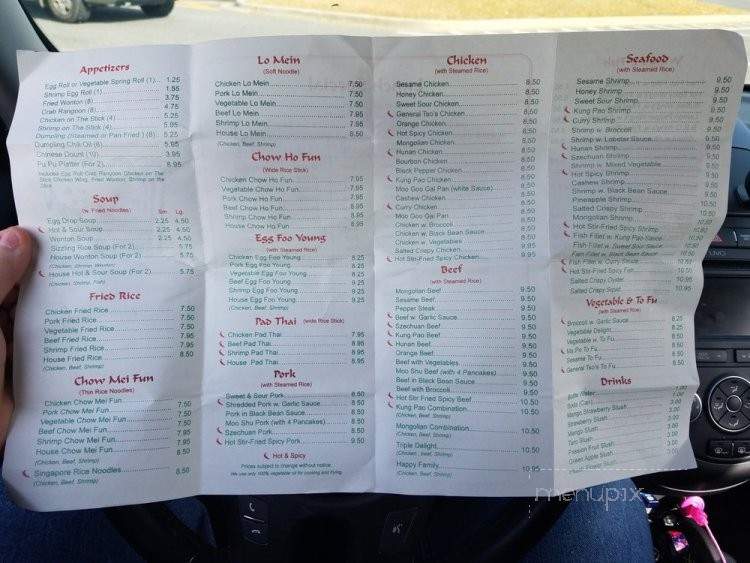 Appetizers
Egg Roll or Vegetable Spring Roll (1)... 1.25
Shrimp Egg Roll (1) 1.55
Fried Wonton (8) 3.75
Crab Rangoon (8) 4.75
Chicken on The Stick (4) 5.25
Shrimp on The Stick (4) 5.95
Dumpling (Steamed or Pan Fried) (8) 5.25
Dumpling Chili Oil (8) 5.95
Chinese Donut (10) 3.95
Pu Pu Platter (For 2) 8.95
Includes Egg Roll, Crab Rangoon, Chicken on The
Stick Chicken Wing, Fried Wonton, Shrimp on the
Stick
Soup
(w. Fried Noodles) Sm. Lg.
Egg Drop Soup 2.25 4.50
Hot & Sour Soup 2.25 4.50
Wonton Soup 2.25 4.50
Sizzling Rice Soup (For 2) 5.75
House Wonton Soup (For 2) 5.75
(Chicken, Shrimp, Wonton)
House Hot & Sour Soup (For 2) 5.75
(Chicken, Shrimp, Pork)
Fried Rice
Chicken Fried Rice 7.50
Pork Fried Rice 7.50
Vegetable Fried Rice 7.50
Beef Fried Rice 7.95
Shrimp Fried Rice 7.95
House Fried Rice 8.50
(Chicken, Beef, Shrimp)
Chow Mei Fun
(Thin Rice Noodles)
Chicken Chow Mei Fun 7.50
Pork Chow Mei Fun 7.50
Vegetable Chow Mei Fun 7.50
Beef Chow Mei Fun 7.95
Shrimp Chow Mei Fun 7.95
House Chow Mei Fun 8.50
(Chicken, Beef, Shrimp)
Singapore Rice Noodles 8.50
(Chicken, Beef, Shrimp)
Lo Mein
(Soft Noodle)
Chicken Lo Mein 7.50
Pork Lo Mein 7.50
Vegetable Lo Mein 7.50
Beef Lo Mein 7.95
Shrimp Lo Mein 7.95
House Lo Mein 8.50
(Chicken, Beef, Shrimp)
Chow Ho Fun
(Wide Rice Stick)
Chicken Chow Ho Fun 7.95
Vegetable Chow Ho Fun 7.95
Pork Chow Ho Fun 7.95
Beef Chow Ho Fun 8.95
Shrimp Chow Ho Fun 8.95
House Chow Ho Fun 8.95
Egg Foo Young
(with Steamed Rice)
Chicken Egg Foo Young 8.25
Pork Egg Foo Young 8.25
Vegetable Egg Foo Young 8.25
Beef Egg Foo Young 9.25
Shrimp Egg Foo Young 9.25
House Egg Foo Young 9.25
(Chicken, Beef, Shrimp)
Pad Thai (wide Rice Stick)
Chicken Pad Thai 7.95
Beef Pad Thai 8.95
Shrimp Pad Thai 8.95
House Pad Thai 8.95
Pork
(with Steamed Rice)
Sweet & Sour Pork 8.50
Shredded Pork w. Garlic Sauce 8.50
Pork in Black Bean Sauce 8.50
Moo Shu Pork (with 4 Pancakes) 8.50
Szechuan Pork 8.50
Hot Stir-Fried Spicy Pork 9.50
Hot & Spicy
Prices subject to change without notice.
We use only 100% vegetable oil for cooking and frying.
Chicken
(with Steamed Rice)
Sesame Chicken 8.50
Honey Chicken 8.50
Sweet Sour Chicken 8.50
General Tso's Chicken 8.50
Orange Chicken 8.50
Hot Spicy Chicken 8.50
Mongolian Chicken 8.50
Hunan Chicken 8.50
Bourbon Chicken 8.50
Black Pepper Chicken 8.50
Kung Pao Chicken 8.50
Moo Goo Gai Pan (white Sauce) 8.50
Cashew Chicken 8.50
Curry Chicken 8.50
Moo Goo Gai Pan 8.50
Chicken w. Broccoli 8.50
Chicken w. Black Bean Sauce 8.50
Chicken w. Vegetables 8.50
Salted Crispy Chicken 9.95
Hot Stir-Fried Spicy Chicken 9.95
Beef
(with Steamed Rice)
Mongolian Beef 9.50
Sesame Beef 9.50
Pepper Steak 9.50
Beef w. Garlic Sauce 9.50
Szechuan Beef 9.50
Kung Pao Beef 9.50
Hunan Beef 9.50
Orange Beef 9.50
Beef with Vegetables 9.50
Moo Shu Beef (with 4 Pancakes) 9.50
Beef in Black Bean Sauce 9.50
Beef with Broccoli 9.50
Hot Stir Fried Spicy Beef 10.50
Kung Pao Combination 10.50
(Chicken, Beef, Shrimp)
Mongolian Combination 10.50
(Chicken, Beef, Shrimp)
Triple Delight 10.50
(Chicken, Beef, Shrimp)
Happy Family 10.95
(Chicken, Beef, Shrimp)
Seafood
(with Steamed Rice)
Sesame Shrimp 9.50
Honey Shrimp 9.50
Sweet Sour Shrimp 9.50
Kung Pao Shrimp 9.50
Curry Shrimp 9.50
Shrimp w. Broccoli 9.50
Shrimp w. Lobster Sauce 9.50
Hunan Shrimp 9.50
Szechuan Shrimp 9.50
Shrimp w. Mixed Vegetable 9.50
Hot Spicy Shrimp 9.50
Cashew Shrimp 9.50
Shrimp w. Black Bean Sauce 9.50
Pineapple Shrimp 9.50
Salted Crispy Shrimp
Mongolian Shrimp
Hot Stir-Fried Spicy Shrimp 10.50
Fish Fillet w. Kung Pao Sauce 10.50
Fish Fillet w. Sweet Sour Sauce 10.50
Fish Fillet w. Black Bean Sauce 10.50
Fish Fillet w. Curry Sauce 10.50
Hot Stir-Fried Spicy Fish 10.50
Salted Crispy Oyster 10.95
Salted Crispy Squid 10.95
Vegetable & To Fu
(with Steamed Rice)
Broccoli w. Garlic Sauce 8.25
Vegetable Delight 8.25
Vegetable w. To Fu 8.50
Ma Po To Fu 8.50
Sesame To Fu 8.50
General Tso's To Fu 8.50
Drinks
Bottle Water 1.00
Soda (Can) 1.00
Mango Strawberry Slush 3.00
Strawberry Slush 3.00
Mango Slush 3.00
Taro Slush 3.00
Passion Fruit Slush 3.00
Green Apple Slush 3.00
Slush 3.00
menupix